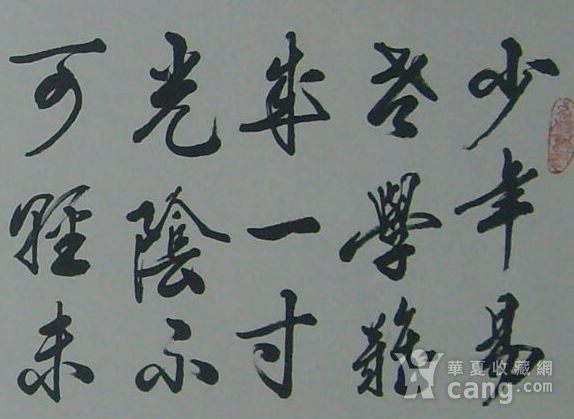 少年易
老學難
成一寸
光陰不
可輕未
華夏收藏網
cang.com